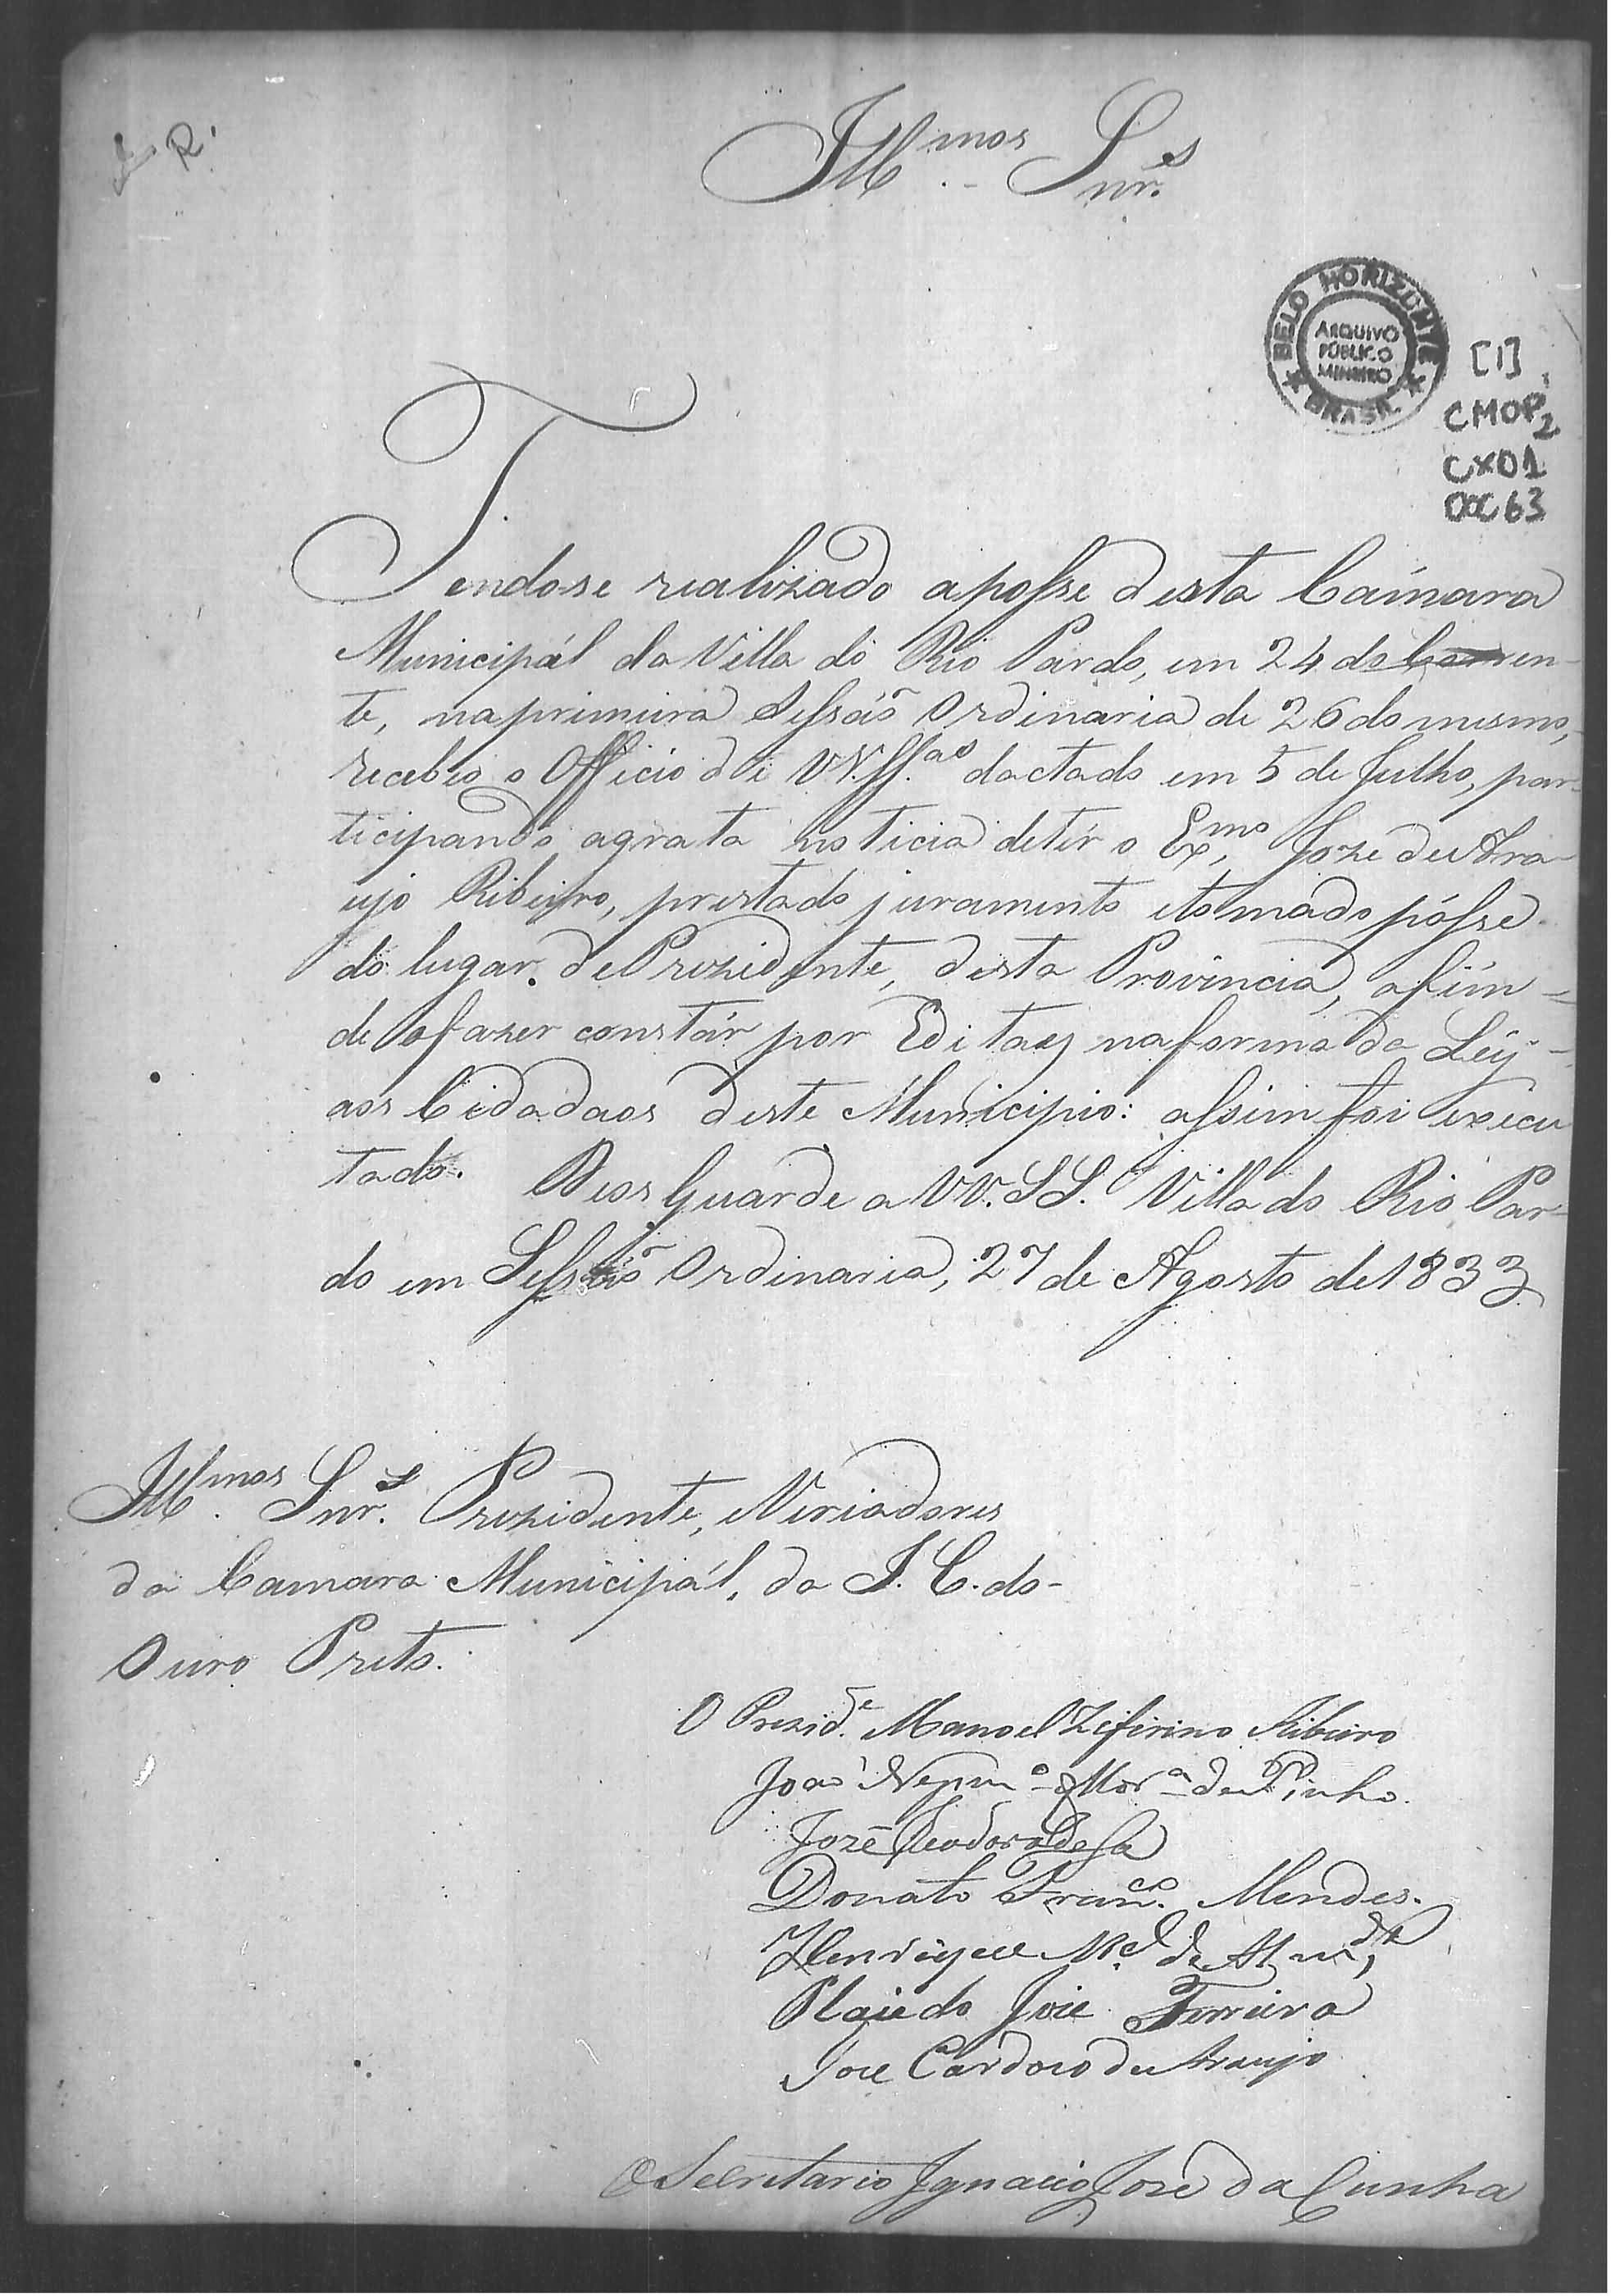 Ill.mos Snr.s
BELO HORIZONTE
ARQUIVO
PÚBLICO
MINEIRO
BRASIL
[1]
CMOP2
CX01
DOC 63
Tendose realizado aposse desta Câmara
Municipál da Villa do Rio Pardo, em 24 do Corren-
te, naprimeira Sessaõ Ordinaria de 26 do mesmo,
recebeo o Officio de VV.SS.as dactado em 5 de Julho, par-
ticipando agrata noticia detér o Ex.mo Joze de Ara-
ujo Ribeiro, prestado juramento etomado pósse
do lugar de Prezidente, desta Provincia, afim
de ofazer constár por Editaes naforma da Ley
aos Cidadaos deste Municipio: assim foi execu
tado. Deos Guarde a VV.SS. Villa do Rio Par-
do em Sessaõ Ordinaria, 27 de Agosto de 1833
Ill.mos Snr.s Prezidente, eVeriadores
da Camara Municipál, da I. C. do
Ouro Preto.
O Prezid.e Manoel Zeferino Ribeiro
Joaõ Nepm.o Mor.a de Pinho
Jozé Teodoro de Sa
Donato Fran.co Mendes.
Henrique M.el de Alm.da
Placido Joze Ferreira
Joze Cardozo de Araujo
O Secretario Ignacio Joze da Cunha